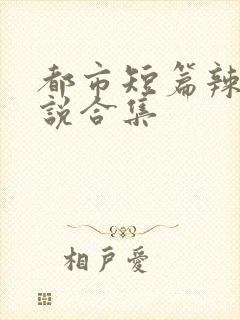 都市短篇辣
説合集
相戶愛